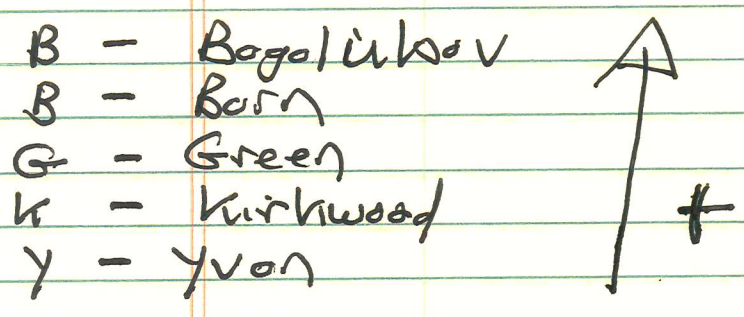 B - Bogoliubov
B - Born
G - Green
K - Kirkwood
Y - Yvon
t